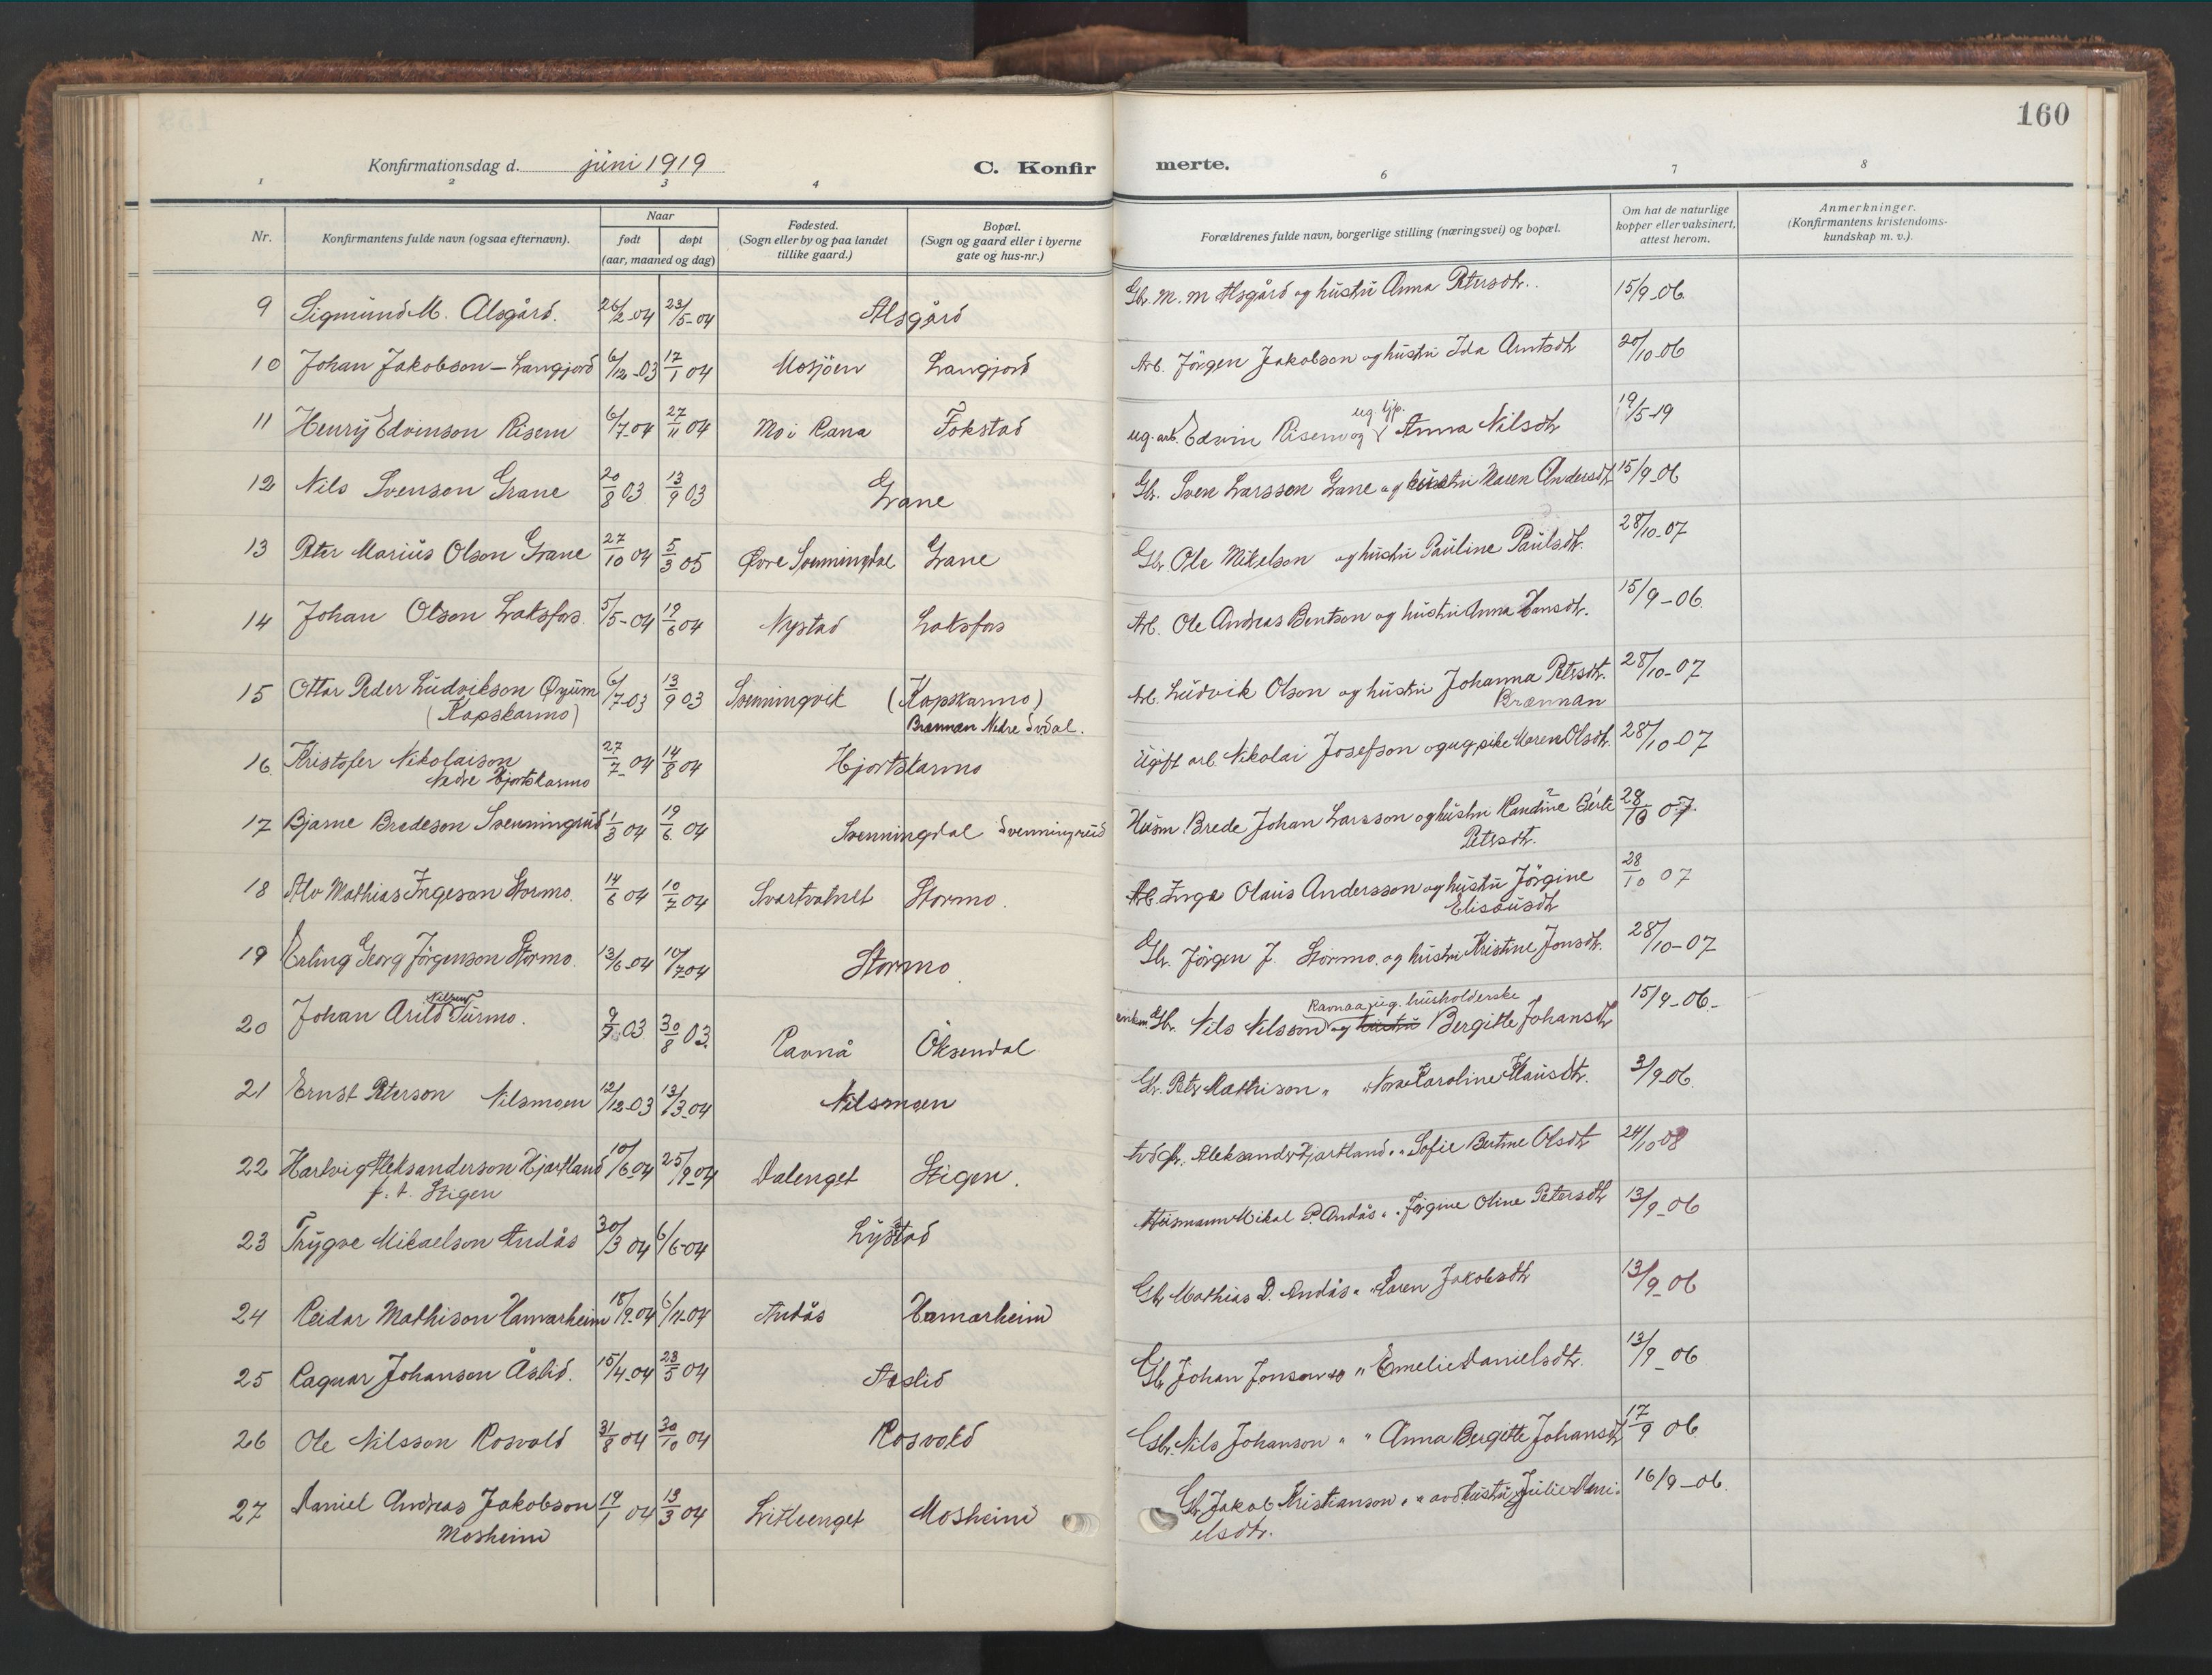 160
Konfirmationsdag d. juni 1919 C. Konfirmerte.
1 2 3 4 6 7 8
Nr. Konfirmantens fulde navn (ogsaa efternavn). Naar født døpt (aar, maaned og dag) Fødested. (Sogn eller by og paa landet tillike gaard.) Bopæl. (Sogn og gaard eller i byerne gate og hus-nr.) Forældrenes fulde navn, borgerlige stilling (næringsvei) og bopæl. Om hat de naturlige kopper eller vaksinert, attest herom. Anmerkninger. (Konfirmantens kristendoms-kundskap m. v.).
9 Sigmund M. Alsgård. 26/2-04 23/5-04 Alsgård Gbr. M. M Alsgård og hustru Anna Petersdtr. 15/9-06.
10 Johan Jakobson - Langjord 6/12-03 17/1 04 Mosjöen Langjord Arb. Jörgen Jakobson og hustru Ida Arntsdtr 20/10-06
11 Henry Edvinson Risem 6/7-04 27/11 04 Mo i Rana Fokstad ug. arb. Edvin Risem og ug. tjp. Anna Nilsdtr 19/5-19
12 Nils Svenson Grane 20/8 03 13/9 03 Grane Gbr. Sven Larssen Grane og hustru Maren Andersdtr 15/9-06
13 Peter Marius Olson Grane 27/10 04 5/3 05 Øvre Svenningdal Grane Gbr. Ole Mikelson og hustru Pauline Paulsdtr. 28/10-07
14 Johan Olson Laksfos. 5/5-04 19/6 04 Nystad Laksfos Arb. Ole Andreas Bentsen og hustru Anna Hansdtr. 15/9-06.
15 Ottar Peder Ludvikson Øyum 6/7-03 13/9 03 Svenningvik (Kapskarmo) Arb. Ludvik Olson og hustru Johanna Petersdtr. 28/10-07
(Kapskarmo) Brennan Nedre Svdal. Brænnan
16 Kristofer Nikolaison 27/7-04 14/8 04 Hjortskarmo Ugift arb. Nikolai Josefson og ug pike Maren Olsdtr. 28/10-07
Nedre Hjortskarmo
17 Bjarne Bredeson Svenningrud 1/3 04 19/6 04 Svenningdal Svenningrud Husm. Brede Johan Larsson og hustru Randine Berte 28/10 07.
Petersdtr.
18 Alv Mathias Ingeson Stormo. 14/6 04 10/7 04 Svartvatnet Stormo. Arb. Inge Olaus Andersson og hustru Jörgine 28/10 07
Elisæusdtr
19 Erling Georg Jörgenson Stormo. 13/6-04 10/7-04 Stormo Gbr. Jörgen J. Stormo. og hustru Kristine Jonsdtr. 28/10-07
20 Johan Arild Nilsen Turmo. 9/7 03 30/8 03. Ravnå Öksendal enkem. Gbr. Nils Nilsson Ravnaa og hustru ug. husholderske Bergitte Johansdtr 15/9-06-
21 Ernst Peterson Nilsmoen 12/12-03 13/3-04 Nilsmoen Gbr. Peter Mathison " " Karoline Klausdtr. 3/9-06.
22 Hartvig Aleksanderson Hjortland 10/6-04 25/9-04 Dalenget Stigen. Aleksander Hjortland. " Sofie Bertine Olsdtr 24/10 08
f. t. Stigen
23 Trygve Mikaelson Andås 30/3 04 6/6-04 Lystad Husmann Mikal P. Andås " " Jörgine Oline Petersdtr 13/9-06
24 Reidar Mathison Hamarheim 18/9-04 6/11-04 Andås Hamarheim Gbr Mathias P. Andås " " Karen Jakobsdtr 13/9-06
25 Ragnar Johanson Åslid. 15/4-04 23/5 04 Aaslid Gbr Johan Jonson " " Emelie Danielsdtr. 13/9-06
26 Ole Nilsson Rosvold 31/8 04 30/10 04 Rosvold Gbr. Nils Johanson " " Anna Bergitte Johansdtr 17/9 06.
27 Daniel Andreas Jakobson 14/1 04 13/3 04 Litleenget Mosheim Gbr Jakob Kristianson " " avd hustru Julie Dani- 16/9-06.
Mosheim elsdtr.